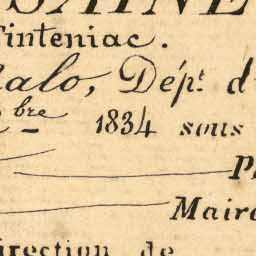 SAINE
Tinteniac.
Malo, Dép.t d
bre 1834 sous
P
Mair
Direction de